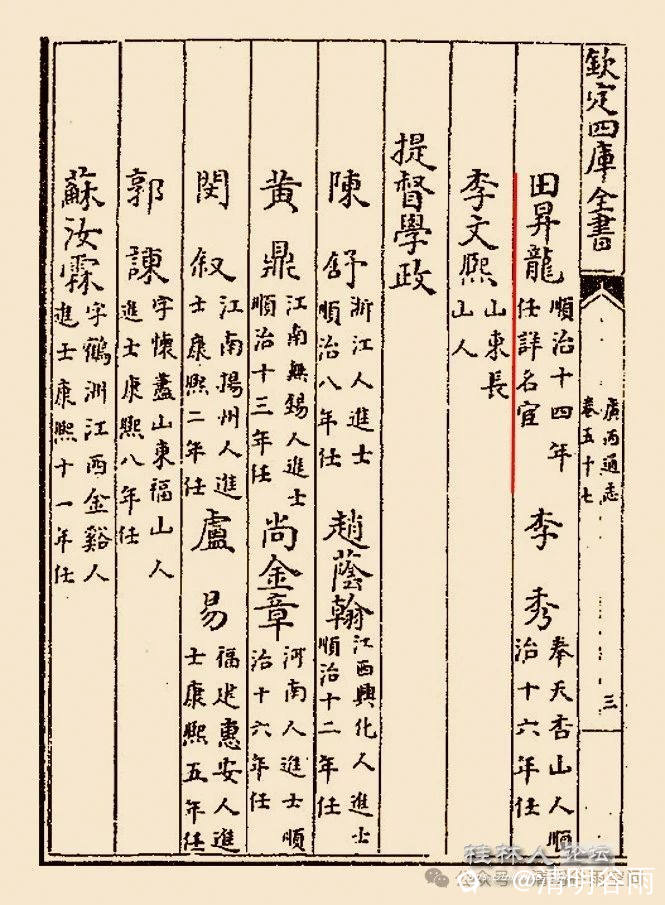 欽定四庫全書
廣西通志
卷五十七
三
田昇龍 順治十四年任詳名宦 李秀 奉天杏山人順治十六年任
李文熙 山東長山人
提督學政
陳舒 浙江人進士順治八年任 趙蔭翰 江西興化人進士順治十二年任
黃鼎 江南無錫人進士順治十三年任 尚金章 河南人進士順治十六年任
閔叙 江南揚州人進士康熙二年任 盧易 福建惠安人進士康熙五年任
郭諫 字懷藎山東福山人進士康熙八年任
蘇汝霖 字鶴洲江西金谿人進士康熙十一年任
桂林人论坛
公众号
@清明谷雨